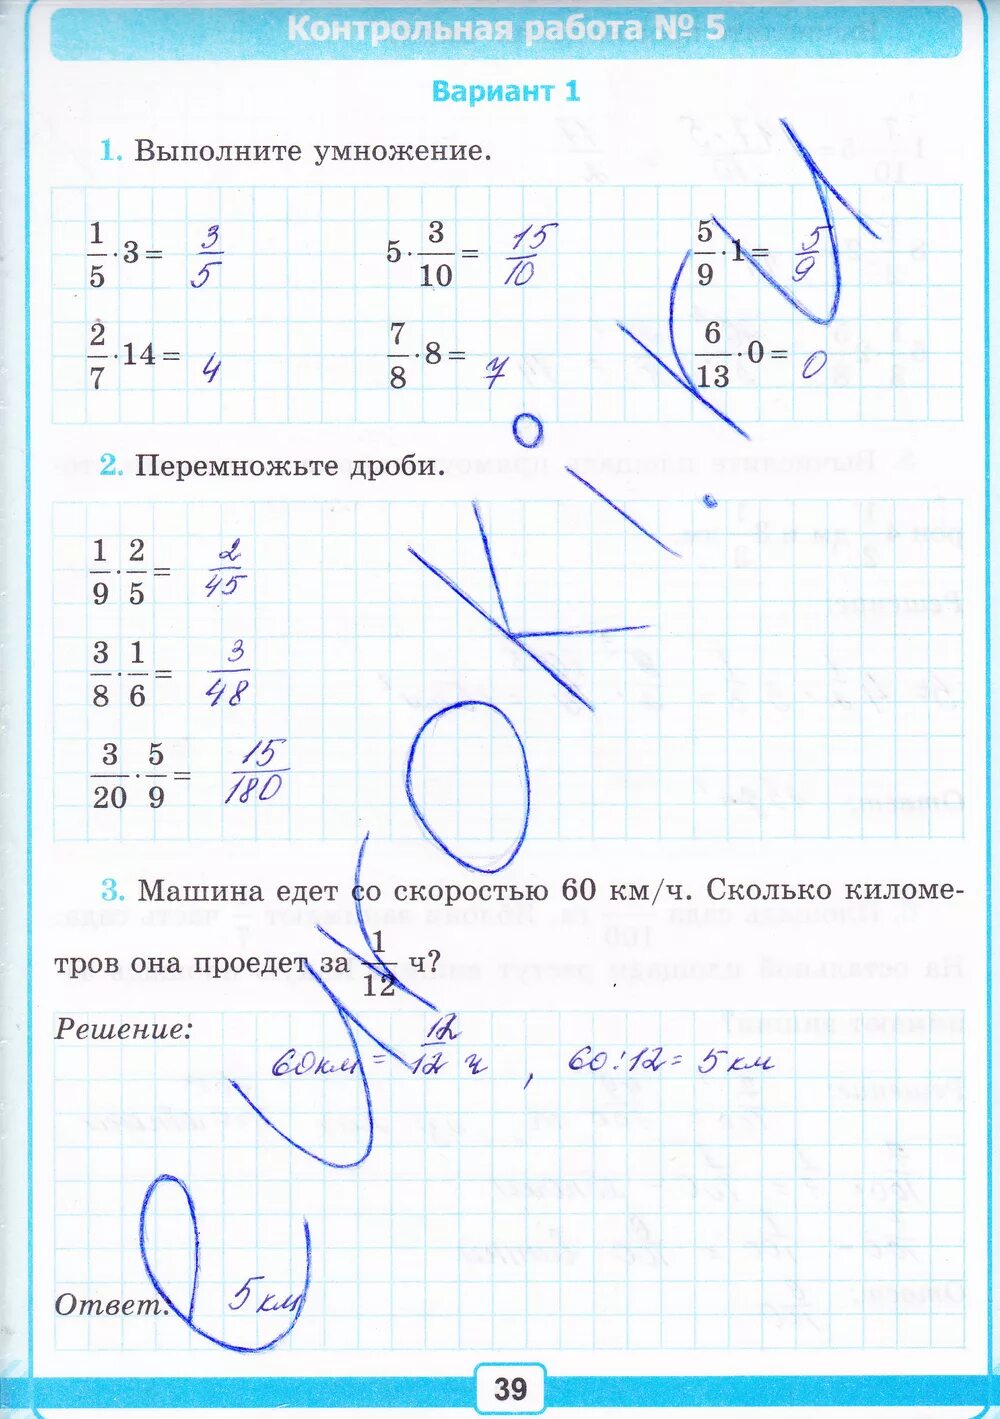 Контрольная работа № 5
Вариант 1
1. Выполните умножение.
1/5 · 3 = 3/5    5 · 3/10 = 15/10    5/9 · 1 = 5/9
2/7 · 14 = 4    7/8 · 8 = 7    6/13 · 0 = 0
2. Перемножьте дроби.
1/9 · 2/5 = 2/45
3/8 · 1/6 = 3/48
3/20 · 5/9 = 15/180
3. Машина едет со скоростью 60 км/ч. Сколько киломе-
тров она проедет за 1/12 ч?
Решение:
60 км = 12/12 ч , 60 : 12 = 5 км
Ответ: 5 км
39